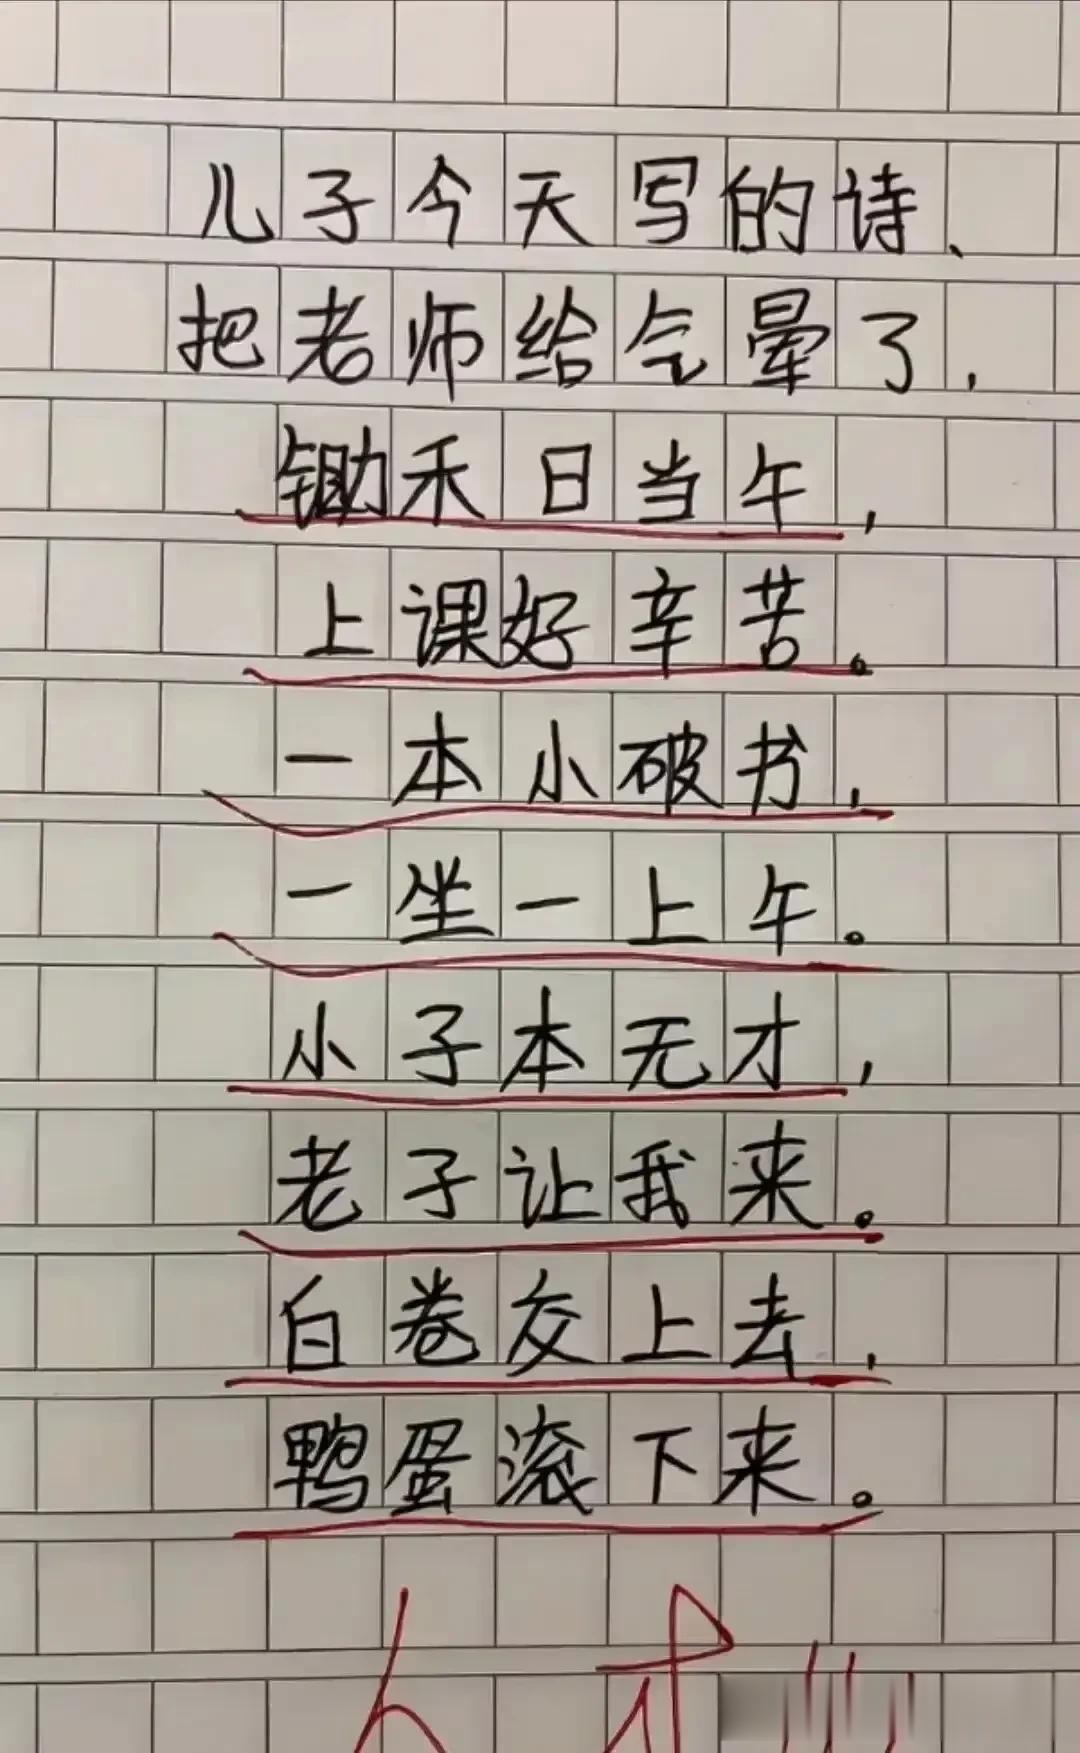 儿子今天写的诗、
把老师给气晕了.
锄禾日当午,
上课好辛苦。
一本小破书,
一坐一上午。
小子本无才,
老子让我来。
白卷交上去,
鸭蛋滚下来。